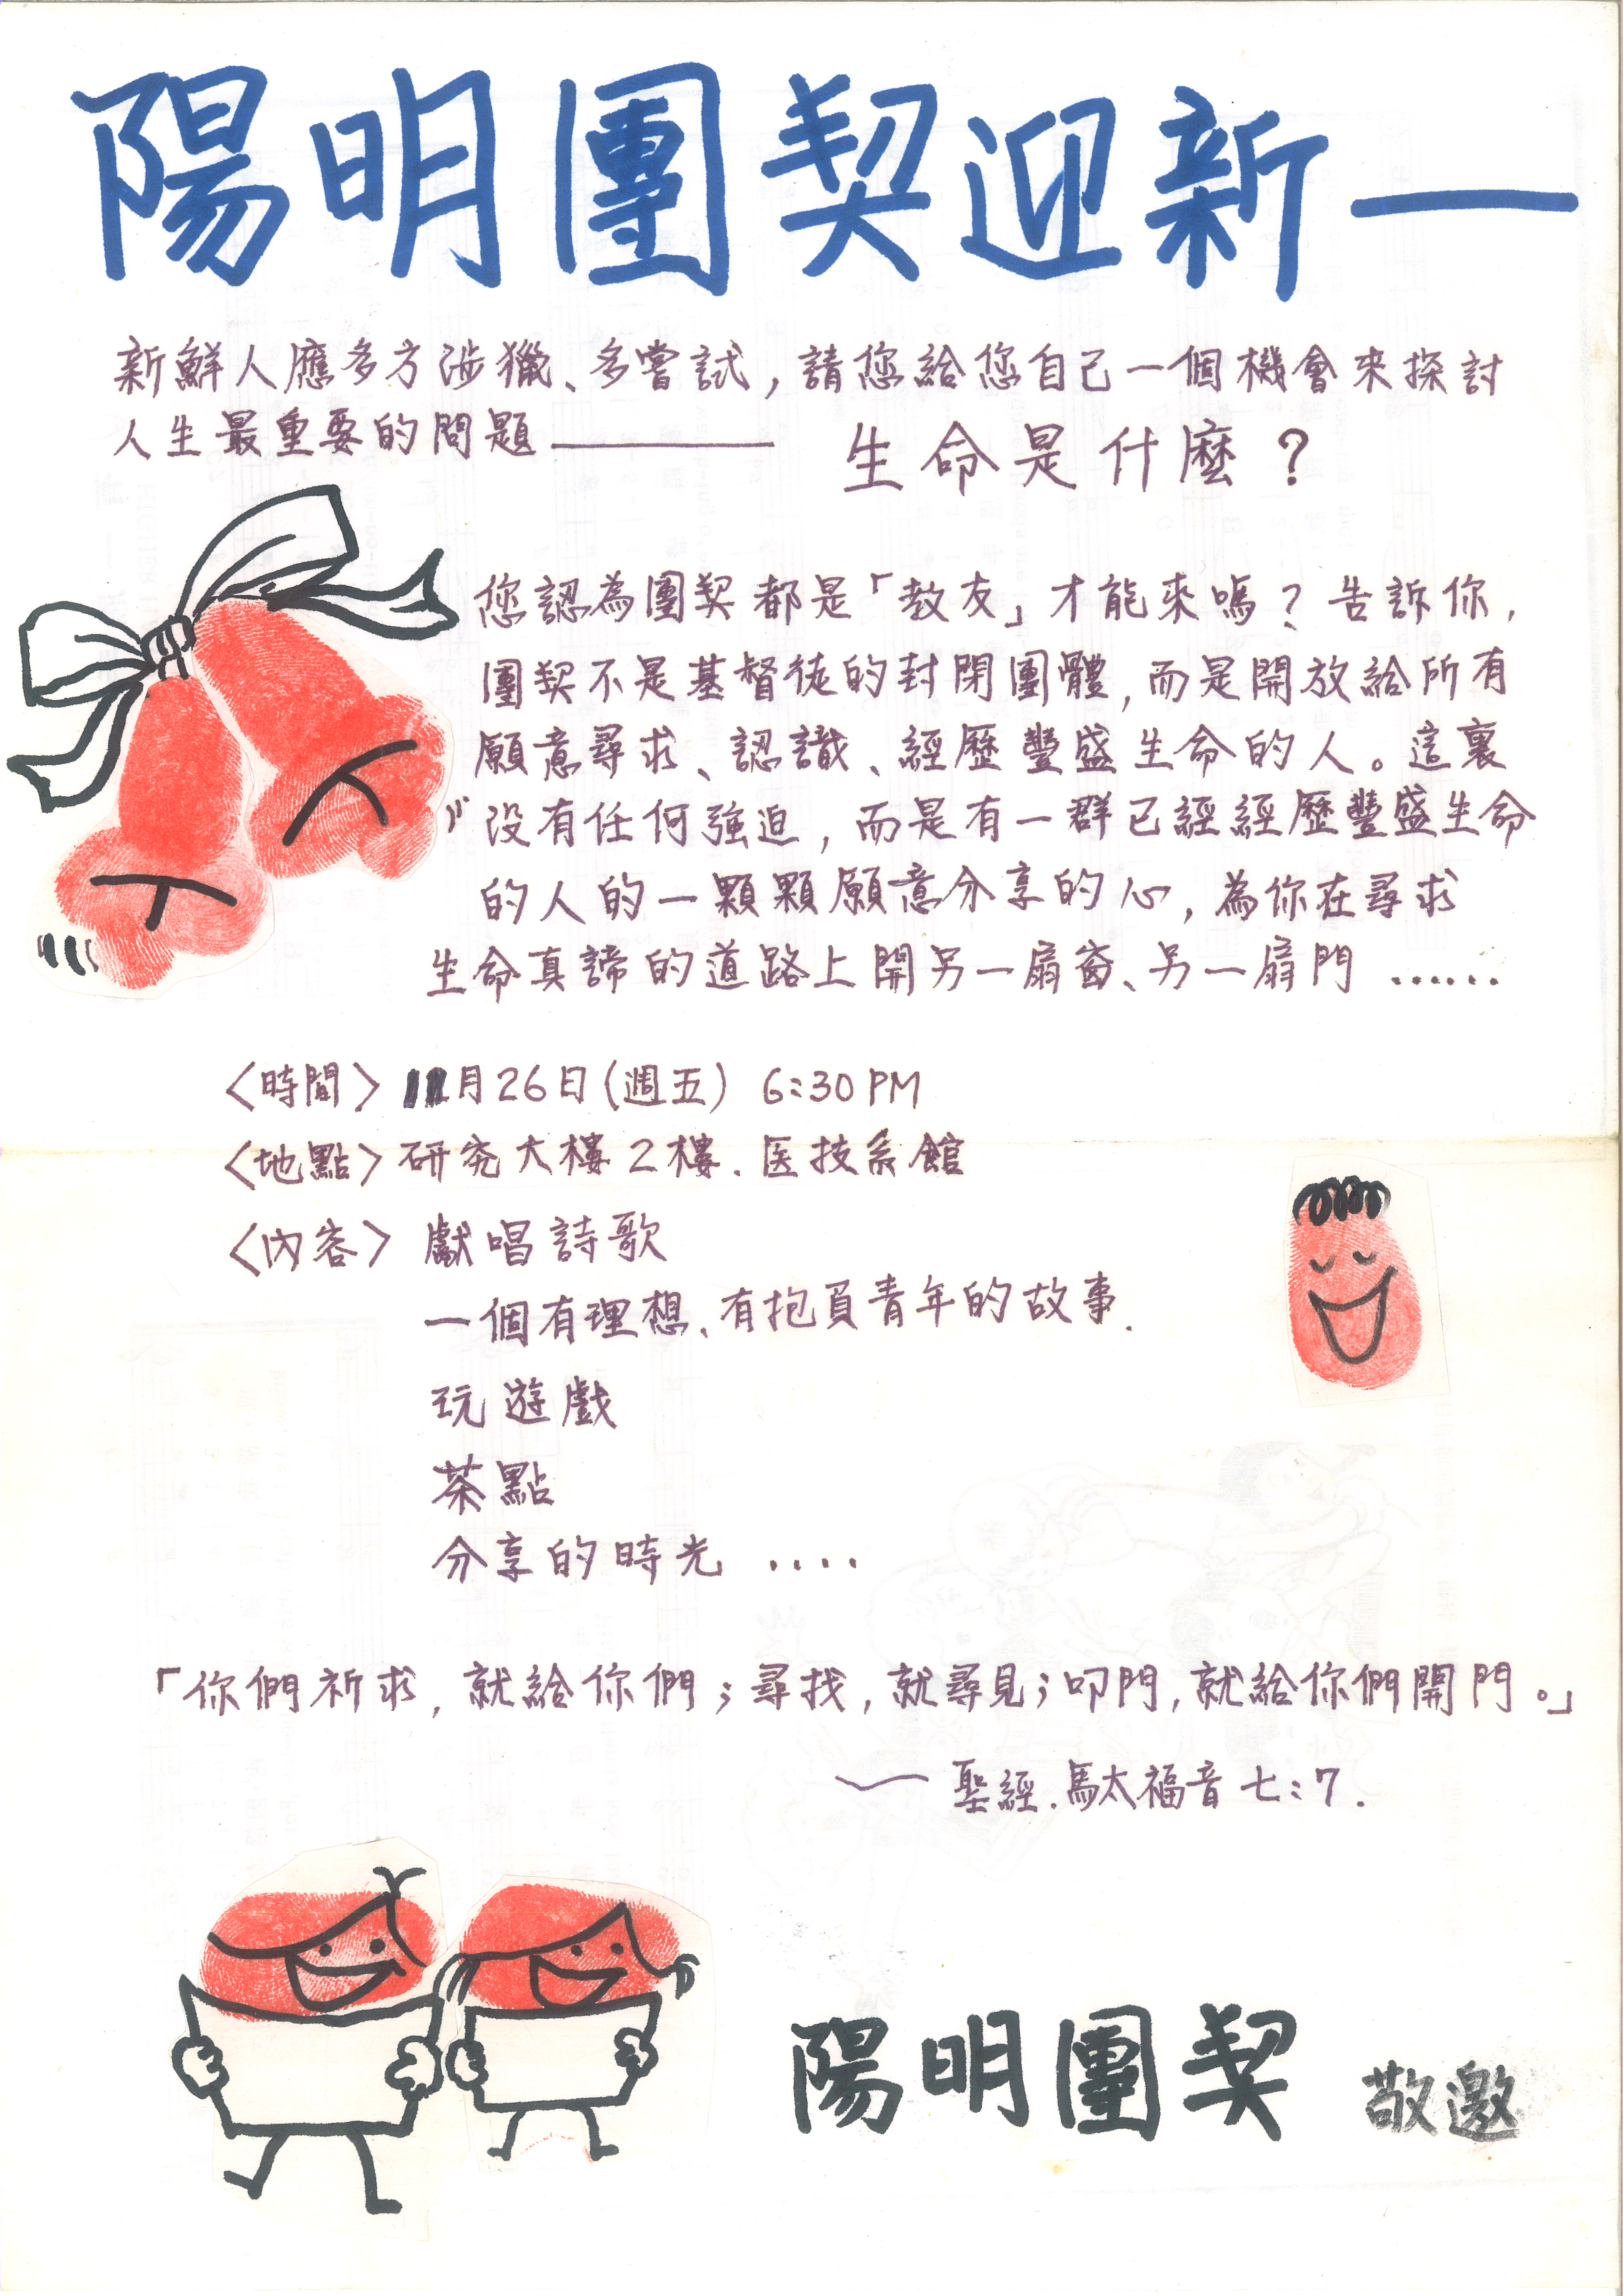 陽明團契迎新—
新鮮人應多方涉獵、多嘗試，請您給您自己一個機會來探討
人生最重要的問題——— 生命是什麼？
您認為團契都是「教友」才能來嗎？告訴你，
團契不是基督徒的封閉團體，而是開放給所有
願意尋求、認識、經歷豐盛生命的人。這裏
沒有任何強迫，而是有一群已經經歷豐盛生命
的人的一顆顆願意分享的心，為你在尋求
生命真諦的道路上開另一扇窗、另一扇門……
〈時間〉月26日(週五) 6:30PM
〈地點〉研究大樓2樓．医技系館
〈內容〉獻唱詩歌
一個有理想、有抱負青年的故事.
玩遊戲
茶點
分享的時光 ‥‥
「你們祈求，就給你們；尋找，就尋見；叩門，就給你們開門。」
—聖經．馬太福音七:7.
陽明團契 敬邀